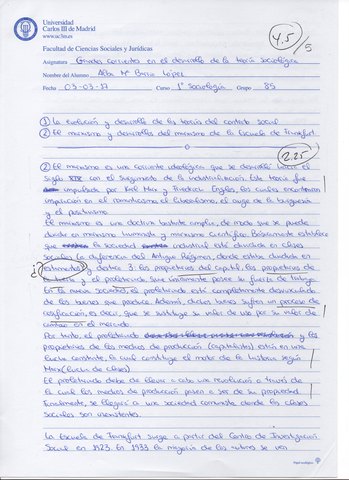 Universidad
Carlos III de Madrid
www.uc3m.es
4.5/5
Facultad de Ciencias Sociales y Jurídicas
Asignatura Grandes corrientes en el desarrollo de la teoría sociológica
Nombre del Alumno Alba Mª López
Fecha 03-03-17 Curso 1º Sociología Grupo 85
① La evolución y desarrollo de las teorías del contrato social
② El marxismo y desarrollos del marxismo de la Escuela de Frankfurt.
2.25
② El marxismo es una corriente ideológica que se desarrolló hacia el
siglo XIX con el surgimiento de la industrialización. Esta teoría fue
impulsada por Karl Marx y Friedrich Engels, los cuales encontraron
inspiración en el romanticismo, el liberalismo, el auge de la burguesía
y el positivismo.
El marxismo es una doctrina bastante amplia, de modo que se puede
dividir en marxismo humanista y marxismo científico. Básicamente establece
que la sociedad industrial está dividida en clases
sociales (a diferencia del Antiguo Régimen, donde estaba dividida en
estamentos) y destaca 3: los propietarios del capital, los propietarios de
la tierra y el proletariado, que únicamente posee su fuerza de trabajo.
En la nueva sociedad, el proletariado está completamente desvinculado
de los bienes que produce. Además, dichos bienes sufren un proceso de
cosificación, es decir, que se sustituye su valor de uso por su valor de
cambio en el mercado.
Por tanto, el proletariado y los
propietarios de los medios de producción (capitalistas) están en una
lucha constante, la cual constituye el motor de la historia según
Marx (lucha de clases).
El proletariado debe de llevar a cabo una revolución a través de
la cual los medios de producción pasen a ser de su propiedad.
Finalmente, se llegará a una sociedad comunista donde las clases
sociales son inexistentes.
La Escuela de Frankfurt surge a partir del Centro de Investigación
Social en 1923. En 1933 la mayoría de los autores se van